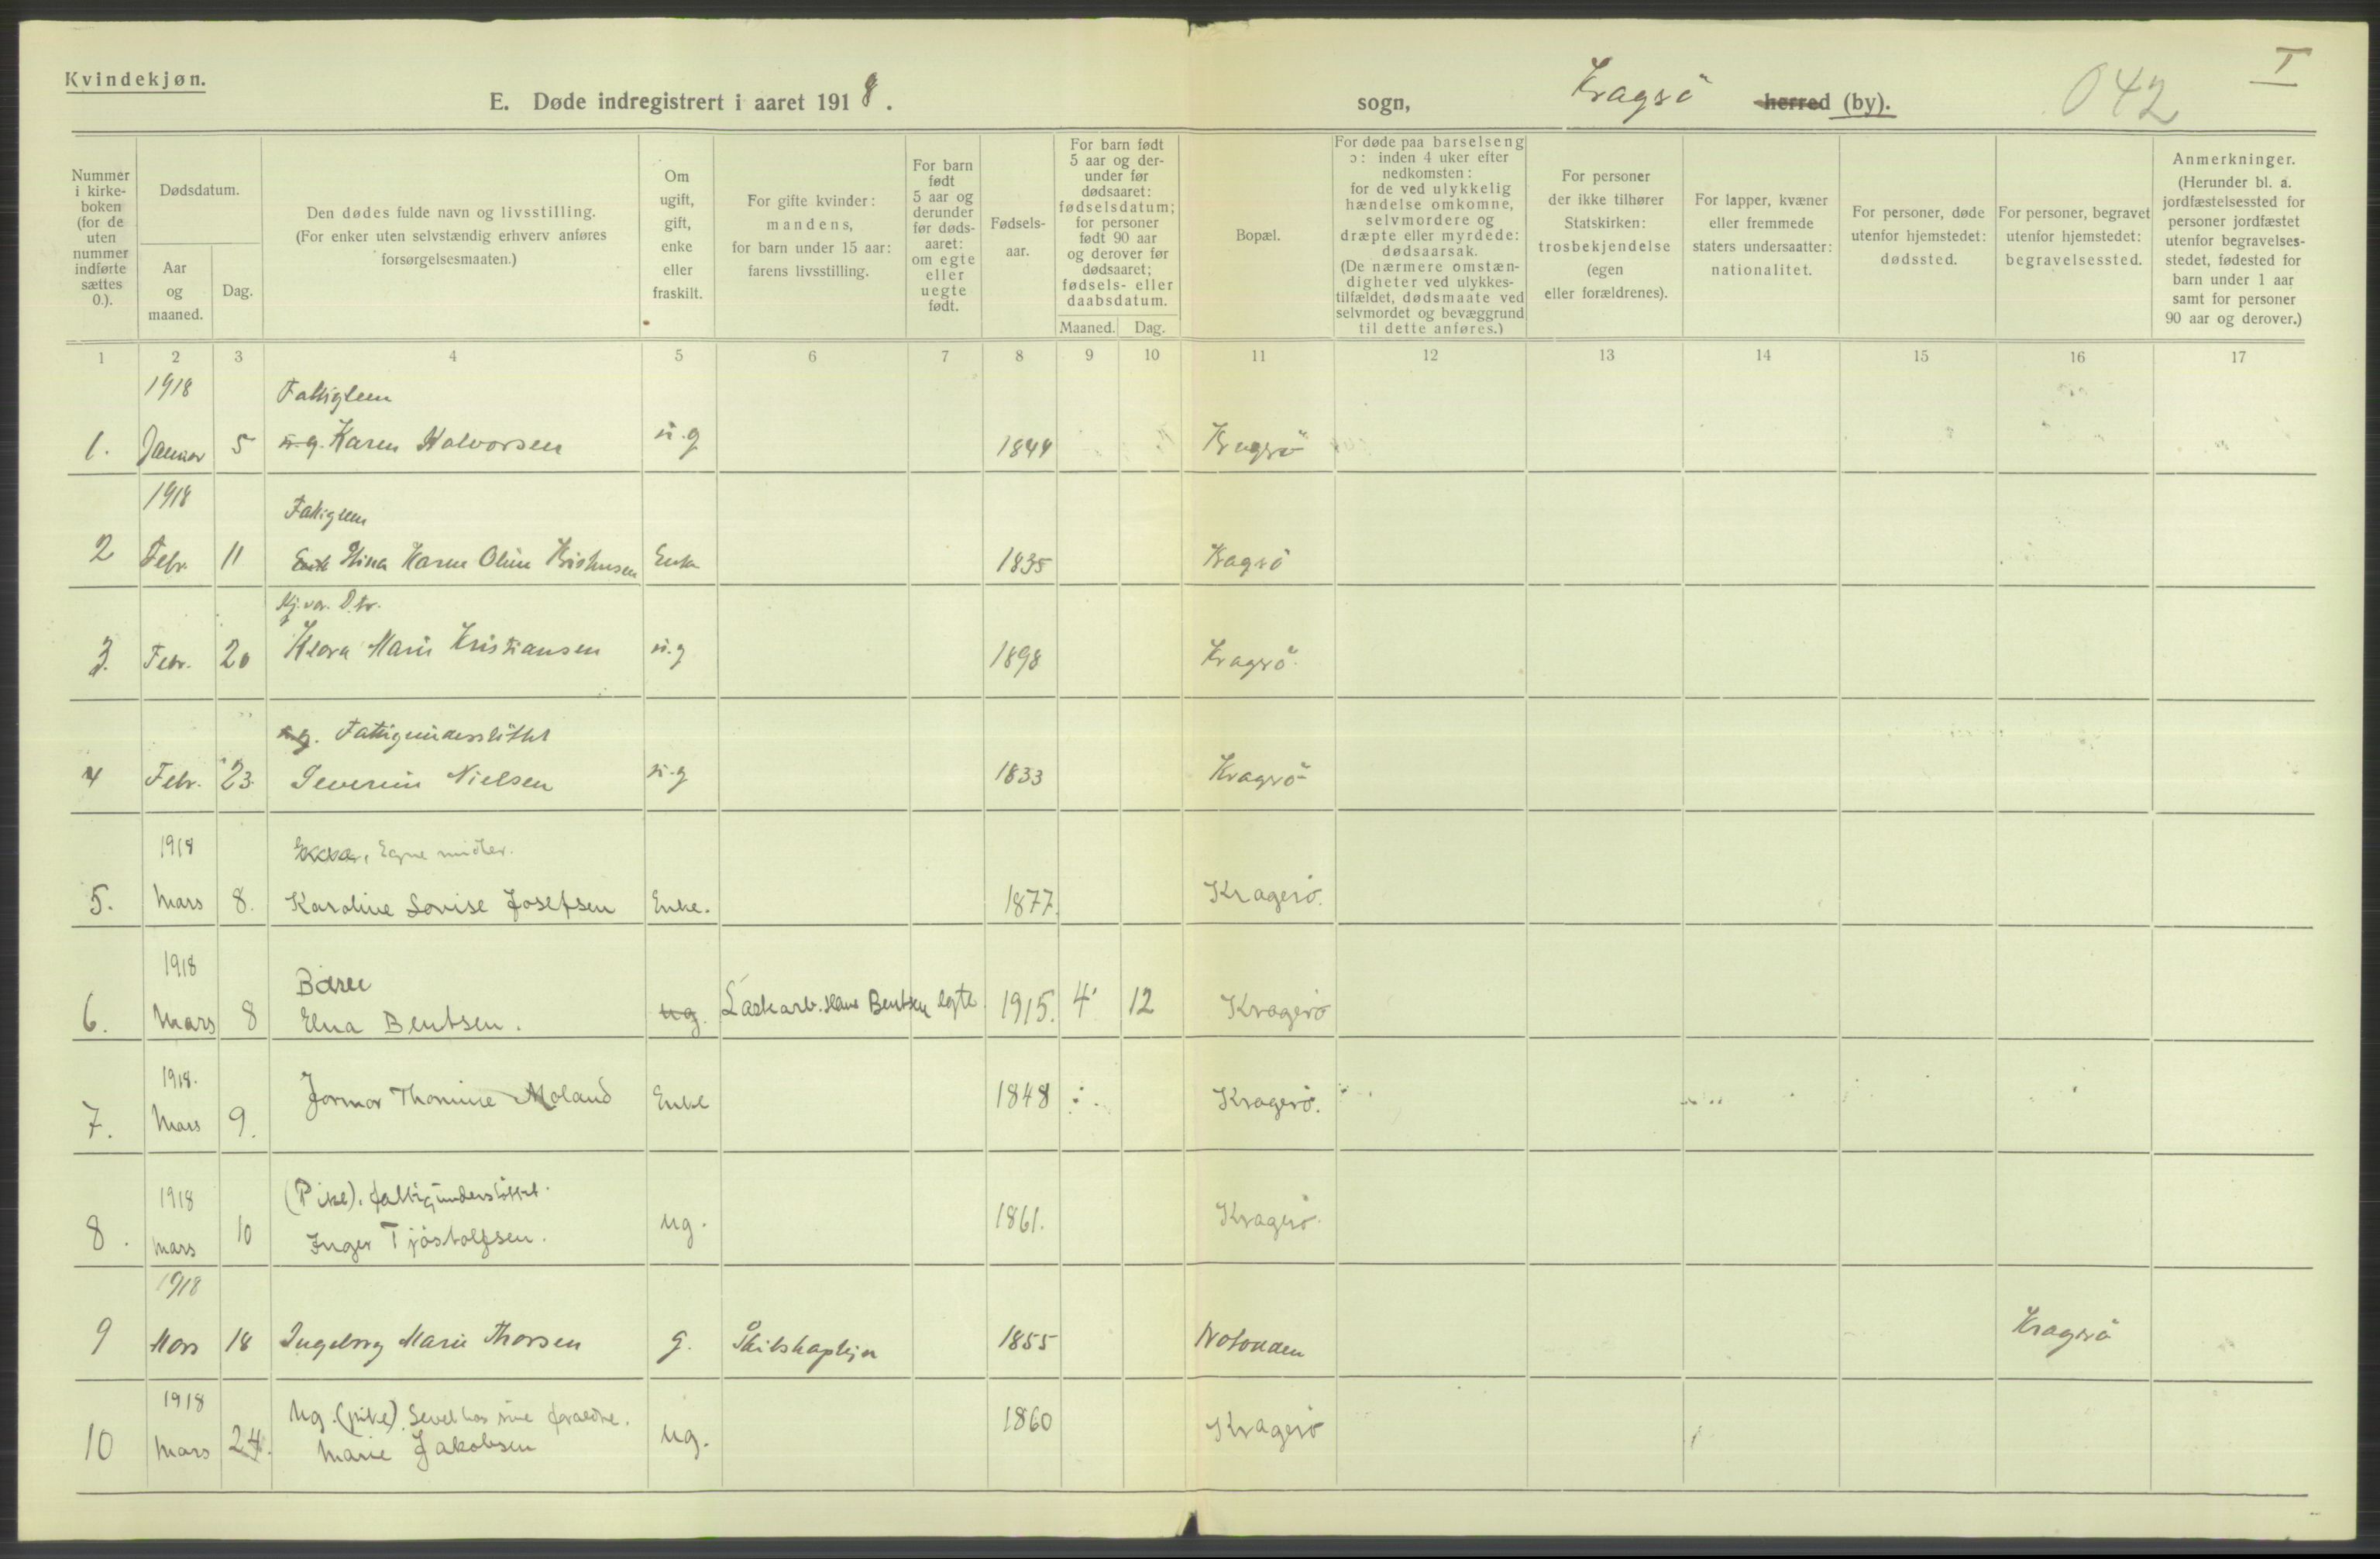 Kvindekjøn.
E. Døde indregistrert i aaret 1918. sogn, Kragrö herred (by). 042 I
Nummer i kirke-boken (for de uten nummer indførte sættes 0.).
Dødsdatum.
Aar og maaned.
Dag.
Den dødes fulde navn og livsstilling. (For enker uten selvstændig erhverv anføres forsørgelsesmaaten.)
Om ugift, gift, enke eller fraskilt.
For gifte kvinder: mandens, for barn under 15 aar: farens livsstilling.
For barn født 5 aar og derunder før døds-aaret: om egte eller uegte født.
Fødsels-aar.
For barn født 5 aar og der-under før dødsaaret: fødselsdatum; for personer født 90 aar og derover før dødsaaret; fødsels- eller daabsdatum.
Maaned. Dag.
Bopæl.
For døde paa barselseng ɔ: inden 4 uker efter nedkomsten: for de ved ulykkelig hændelse omkomne, selvmordere og dræpte eller myrdede: dødsaarsak. (De nærmere omstæn-digheter ved ulykkes-tilfældet, dødsmaate ved selvmordet og bevæggrund til dette anføres.)
For personer der ikke tilhører Statskirken: trosbekjendelse (egen eller forældrenes).
For lapper, kvæner eller fremmede staters undersaatter: nationalitet.
For personer, døde utenfor hjemstedet: dødssted.
For personer, begravet utenfor hjemstedet: begravelsessted.
Anmerkninger. (Herunder bl. a. jordfæstelsessted for personer jordfæstet utenfor begravelses-stedet, fødested for barn under 1 aar samt for personer 90 aar og derover.)
1 2 3 4 5 6 7 8 9 10 11 12 13 14 15 16 17
1918 Fattiglem
1. Januar 5 u.g. Karen Halvorsen u.g 1844 Kragrö
1918 Fattiglem
2 Febr. 11 Enke Stina Karen Oline Kristiansen Enke 1835 Kragrö
3. Febr. 20 Klara Marie Kristiansen u.g 1898 Kragrö
u.g. Fattigunderstöttet
4 Febr. 23. Severine Nielsen u.g 1833 Kragrö
1918 Egne midler.
5. Mars 8. Karoline Lovise Josefsen Enke. 1877. Kragerö.
1918 Barn
6. Mars 8 Elna Bentsen. ug. Lastarb. Hans Bentsen egte 1915. 4 12 Kragerö
1918.
7. Mars 9. Thomine Moland Enke 1848 Kragerö.
1918 (Pike). fattigunderstöttet.
8. Mars 10 Inger Tjöstolfsen. ug. 1861. Kragerö.
1918
9 Mars 18 Ingeborg Marie Thorsen g. Skibskaptein 1855 Notodden Kragrö
1918 Ug. (pike). Levet hos sine foraeldre.
10 Mars 24. Marie Jakobsen ug. 1860 Kragerö